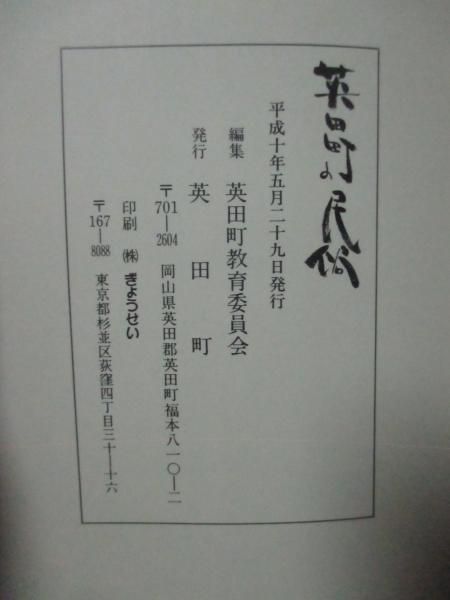 英田町の民俗
平成十年五月二十九日発行
編集 英田町教育委員会
発行 英田町
〒701―2604 岡山県英田郡英田町福本八一〇―二
印刷 ㈱ ぎょうせい
〒167―8088 東京都杉並区荻窪四丁目三十―十六